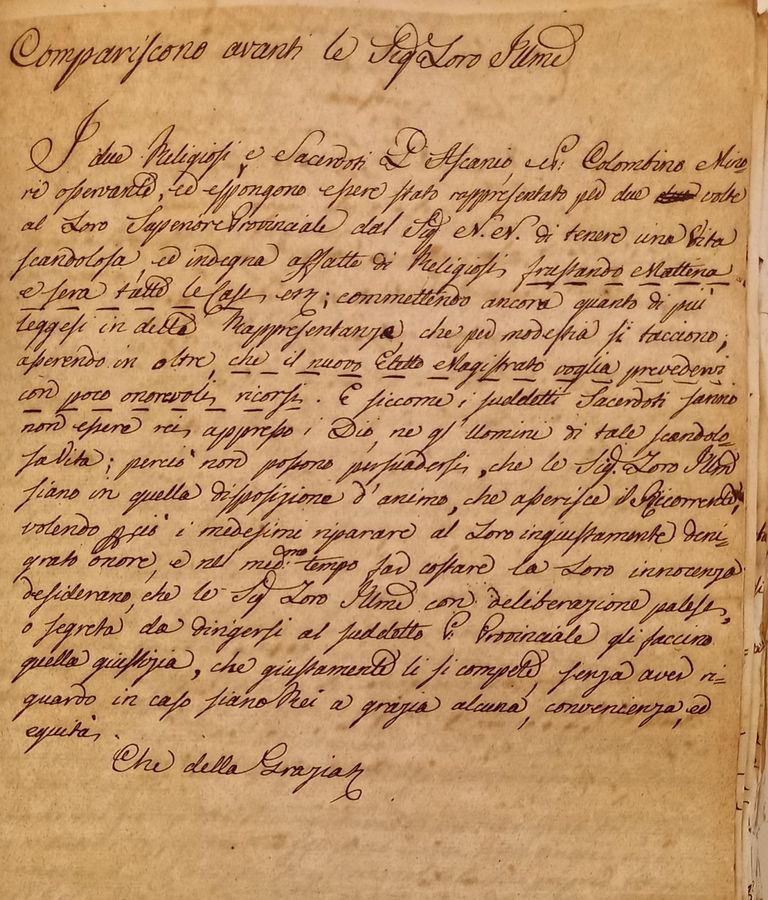 Compariscono avanti le Sig.e Loro Illme
I due Religiosi, e Sacerdoti P. Ascanio, e P. Colombino Mino-
ri osservanti, ed espongono essere stato rappresentato per due volte
al Loro Superiore Provinciale dal Sig.r N. N. di tenere una Vita
scandolosa ed indegna affatto di Religiosi, frustando Mattina
e sera tutte le Case etz; commettendo ancora quanto di più
leggesi in detta Rappresentanza, che per modestia si tacciono;
asserendo in oltre, che il nuovo Eletto Magistrato voglia prevedervi
con poco onorevoli ricorsi. E siccome i suddetti Sacerdoti sanno
non essere rei appresso i Dio, ne gl' Uomini di tale scandolo-
sa Vita; perciò non possono persuadersi, che le Sig.e Loro Illme
siano in quella disposizione d'animo, che asserisce il Ricorrente;
volendo perciò i medesimi riparare al Loro ingiustamente deni-
grato onore, e nel med.mo tempo far costare la Loro innocenza
desiderano, che le Sig.e Loro Illme con deliberazione palese,
o segreta da dirigersi al suddetto P. Provinciale gli faccino
quella giustizia, che giustamente li si compete, senza aver ri-
guardo in caso siano Rei a grazia alcuna, convenienza, ed
equità.
Che della Grazia etz